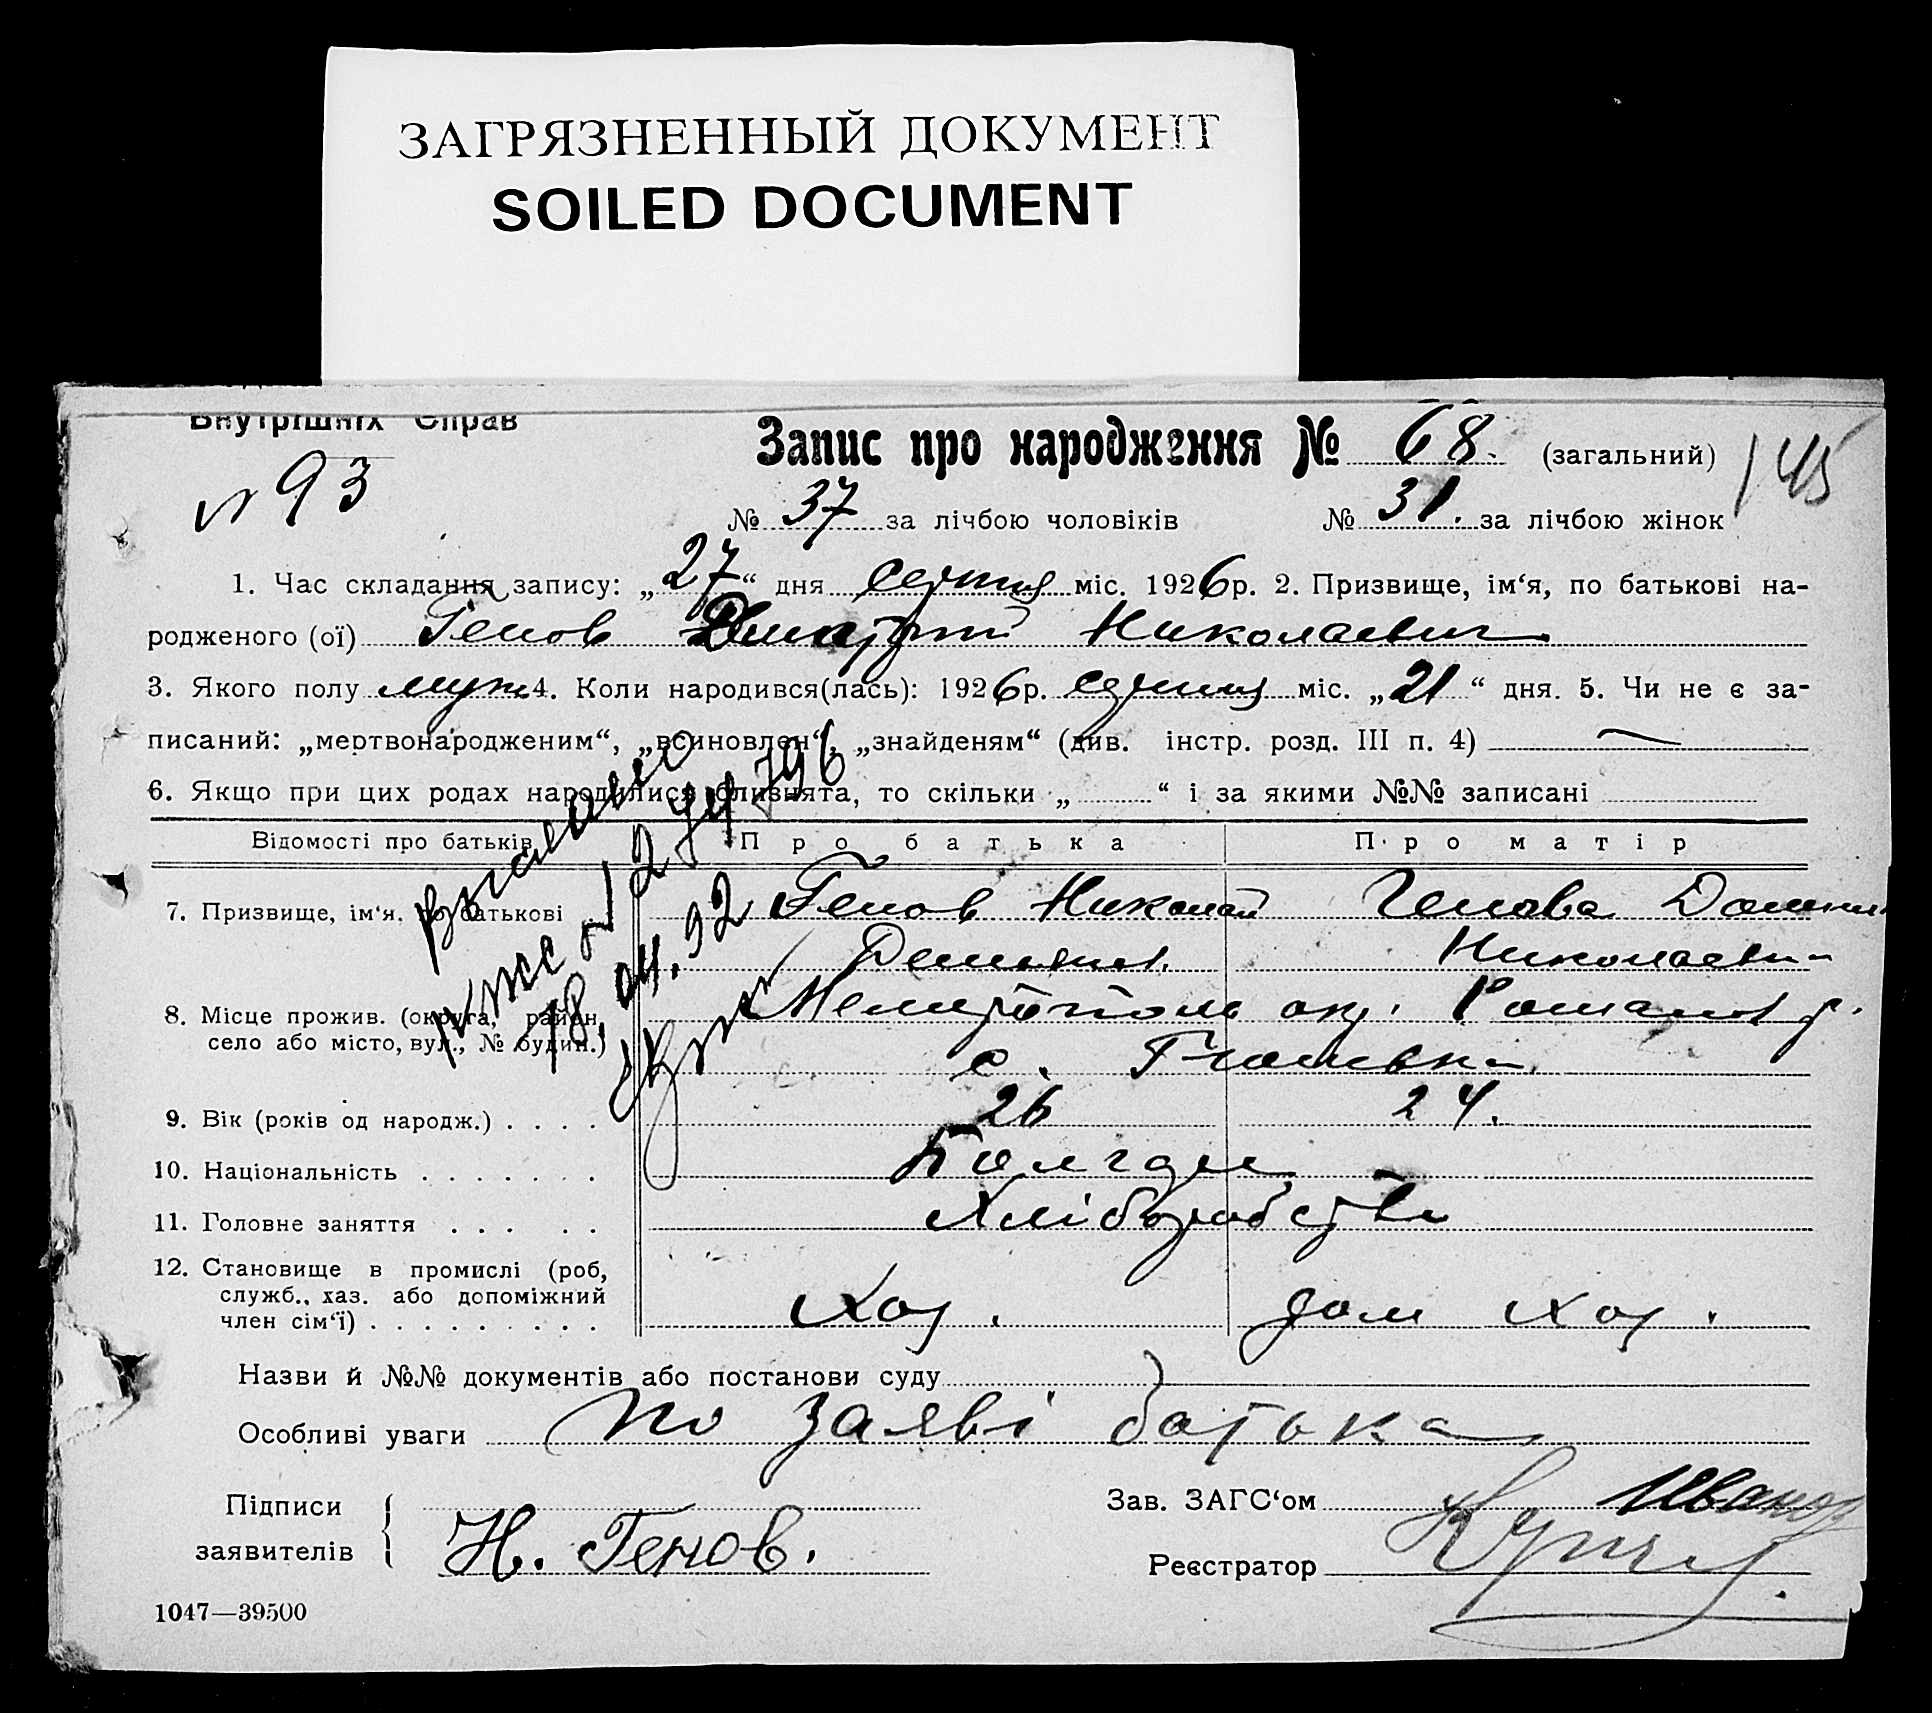 ЗАГРЯЗНЕННЫЙ ДОКУМЕНТ
SOILED DOCUMENT
Внутрішніх Справ
Запис про народження № 68. (загальний)
145
№ 93
№ 37 за лічбою чоловіків № 31. за лічбою жінок
1. Час складання запису: „27“ дня серпня міс. 1926р. 2. Призвище, ім‘я, по батькові на-
родженого (ої) Генов Дмитрий Николаевич
3. Якого полу муж 4. Коли народився(лась): 1926р. серпня міс. „21“ дня. 5. Чи не є за-
писаний: „мертвонародженим“, „всиновлен“, „знайденям“ (див. інстр. розд. III п. 4)
6. Якщо при цих родах народилися близнята, то скільки „ “ і за якими №№ записані
Відомості про батьків Про батька Про матір
7. Призвище, ім‘я, по батькові Генов Николай Генова
Николаевн
8. Місце прожив. (округа, район, окр.
село або місто, вул., № будин.) с.
9. Вік (років од народж.) . . . . 26 24.
10. Національність . . . . . . . Болгари
11. Головне заняття . . . . . Хліборобство
12. Становище в промислі (роб,
служб., хаз. або допоміжний
член сім‘ї) . . . . . . . . . Хоз. дом хоз.
Назви й №№ документів або постанови суду
Особливі уваги по заяві батька
Підписи Зав. ЗАГС‘ом Иванов
заявителів Н. Генов. Реєстратор
1047—39500